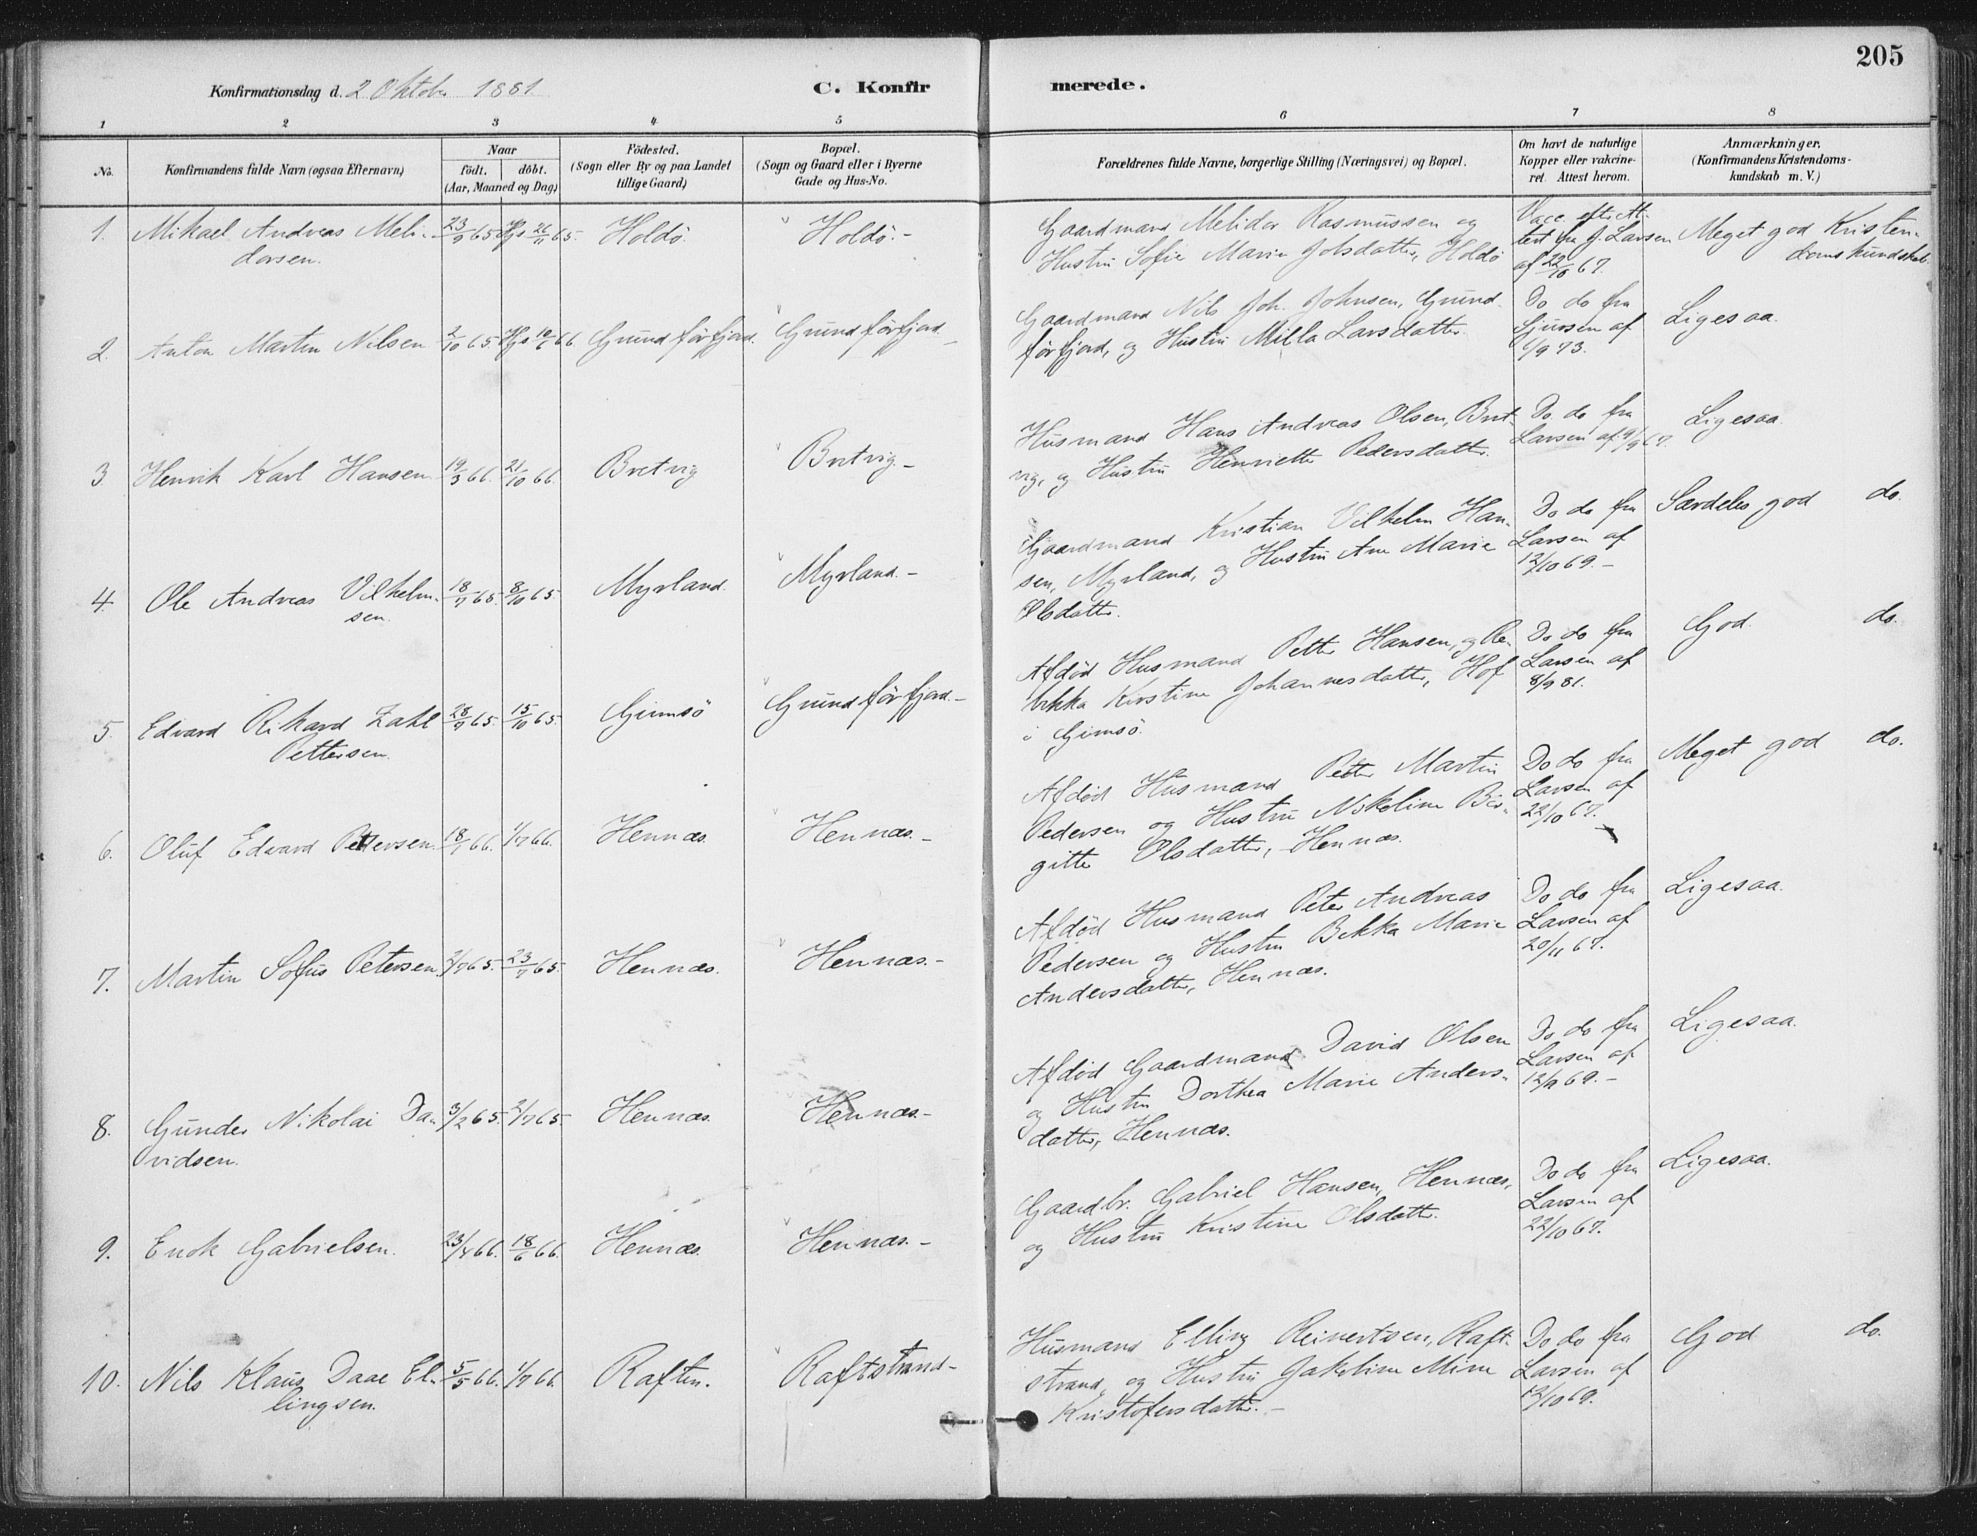 205
Konfirmationsdag d. 2 Oktober 1881
C. Konfir
merede.
1 2 3 4 5 6 7 8
No.
Konfirmandens fulde Navn (ogsaa Efternavn)
Naar
födt. döbt.
(Aar, Maaned og Dag)
Födested.
(Sogn eller By og paa Landet
tillige Gaard)
Bopæl.
(Sogn og Gaard eller i Byerne
Gade og Hus-No.
Forældrenes fulde Navne, borgerlige Stilling (Næringsvei) og Bopæl.
Om havt de naturlige
Kopper eller vakcine-
ret. Attest herom.
Anmærkninger.
(Konfirmandens Kristendoms-
kundskab m. V.)
1. Mikael Andreas Meli-
dorsen.
23/9 65. 26/11 65. Holdö. Holdö.-
Gaardmand Melidor Rasmussen og
Hustru Sofie Marie Jolsdatter, Holdö
Vacc. efter At-
test fra J. Larsen
af 22/10 67.
Meget god Kristen-
domskundskab.
2. Anton Martin Nilsen 2/10 65. 10/6 66 Grundförfjord. Grundförfjord-
Gaardmand Nils Joh. Johnsen, Grund-
förfjord, og Hustru Milla Larsdatter.
Do do fra
Sjursen af
1/9 73.
Ligesaa.
3. Henrik Karl Hansen. 19/3 66. 21/10 66. Bretvig Bretvig.-
Husmand Hans Andreas Olsen, Bret-
vig, og Hustru Henriette Pedersdatter.
Do do fra
Larsen af 9/9 67
Ligesaa.
4. Ole Andreas Vilhelm-
sen.
18/7 65. 8/10 65. Myrland. Myrland.-
Gaardmand Kristian Vilhelm Han-
sen, Myrland, og Hustru Ane Marie
Olsdatter.
Do do fra
Larsen af
12/10 69.-
Særdeles god do.
5. Edvard Rikard Zahl
Pettersen.
28/9 65. 15/10 65. Gimsö Grundförfjord.-
Afdöd Husmand Petter Hansen, og Re-
bekka Kirstine Johannesdatter, Hof
i Gimsö.
Do do fra
Larsen af
8/9 81.
God. do.
6. Oluf Edvard Pettersen. 18/1 66. 1/7 66. Hennæs. Hennæs.-
Afdöd Husmand Petter Martin
Pedersen og Hustru Nikoline Bir-
gitte Olsdatter, Hennæs.
Do do fra
Larsen af
22/10 67.
Meget god do.
7. Martin Sofus Petersen. 2/7 65. 23/7 65. Hennæs. Hennæs.-
Afdöd Husmand Peter Andreas
Pedersen og Hustru Bekka Marie
Andersdatter, Hennæs.
Do do fra
Larsen af
20/11 67.
Ligesaa.
8. Gunder Nikolai Da-
vidsen.
3/2 65. 2/7 65. Hennæs. Hennæs.-
Afdöd Gaardmand David Olsen
og Hustru Dorthea Marie Anders-
datter, Hennæs.
Do do fra
Larsen af
12/9 69.-
Ligesaa.
9. Enok Gabrielsen. 23/4 66. 18/6 66. Hennæs. Hennæs.-
Gaardbr. Gabriel Hansen, Hennæs,
og Hustru Kristine Olsdatter.
Do do fra
Larsen af
22/10 67.
Ligesaa.
10. Nils Klaus Daae El-
lingsen.
5/5 66. 1/7 66. Raften. Raftstrand-
Husmand Elling Reinertsen, Raft-
strand, og Hustru Jakoline Mine
Kristofersdatter.-
Do do fra
Larsen af
12/10 69.
God do.